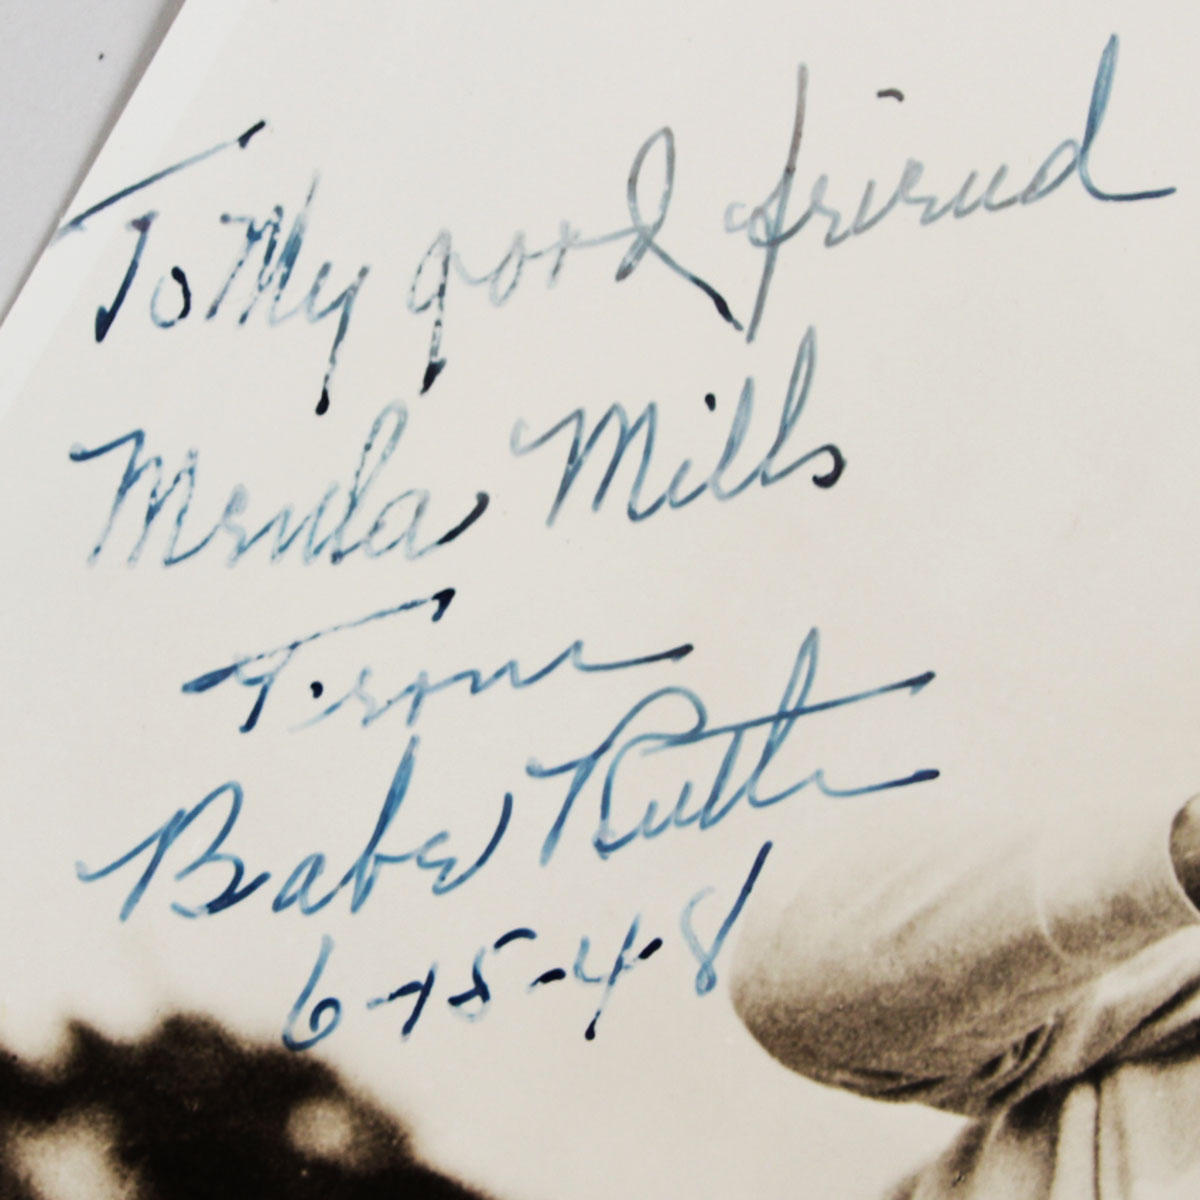 To My good friend
Mills
From
Babe Ruth
6-15-48